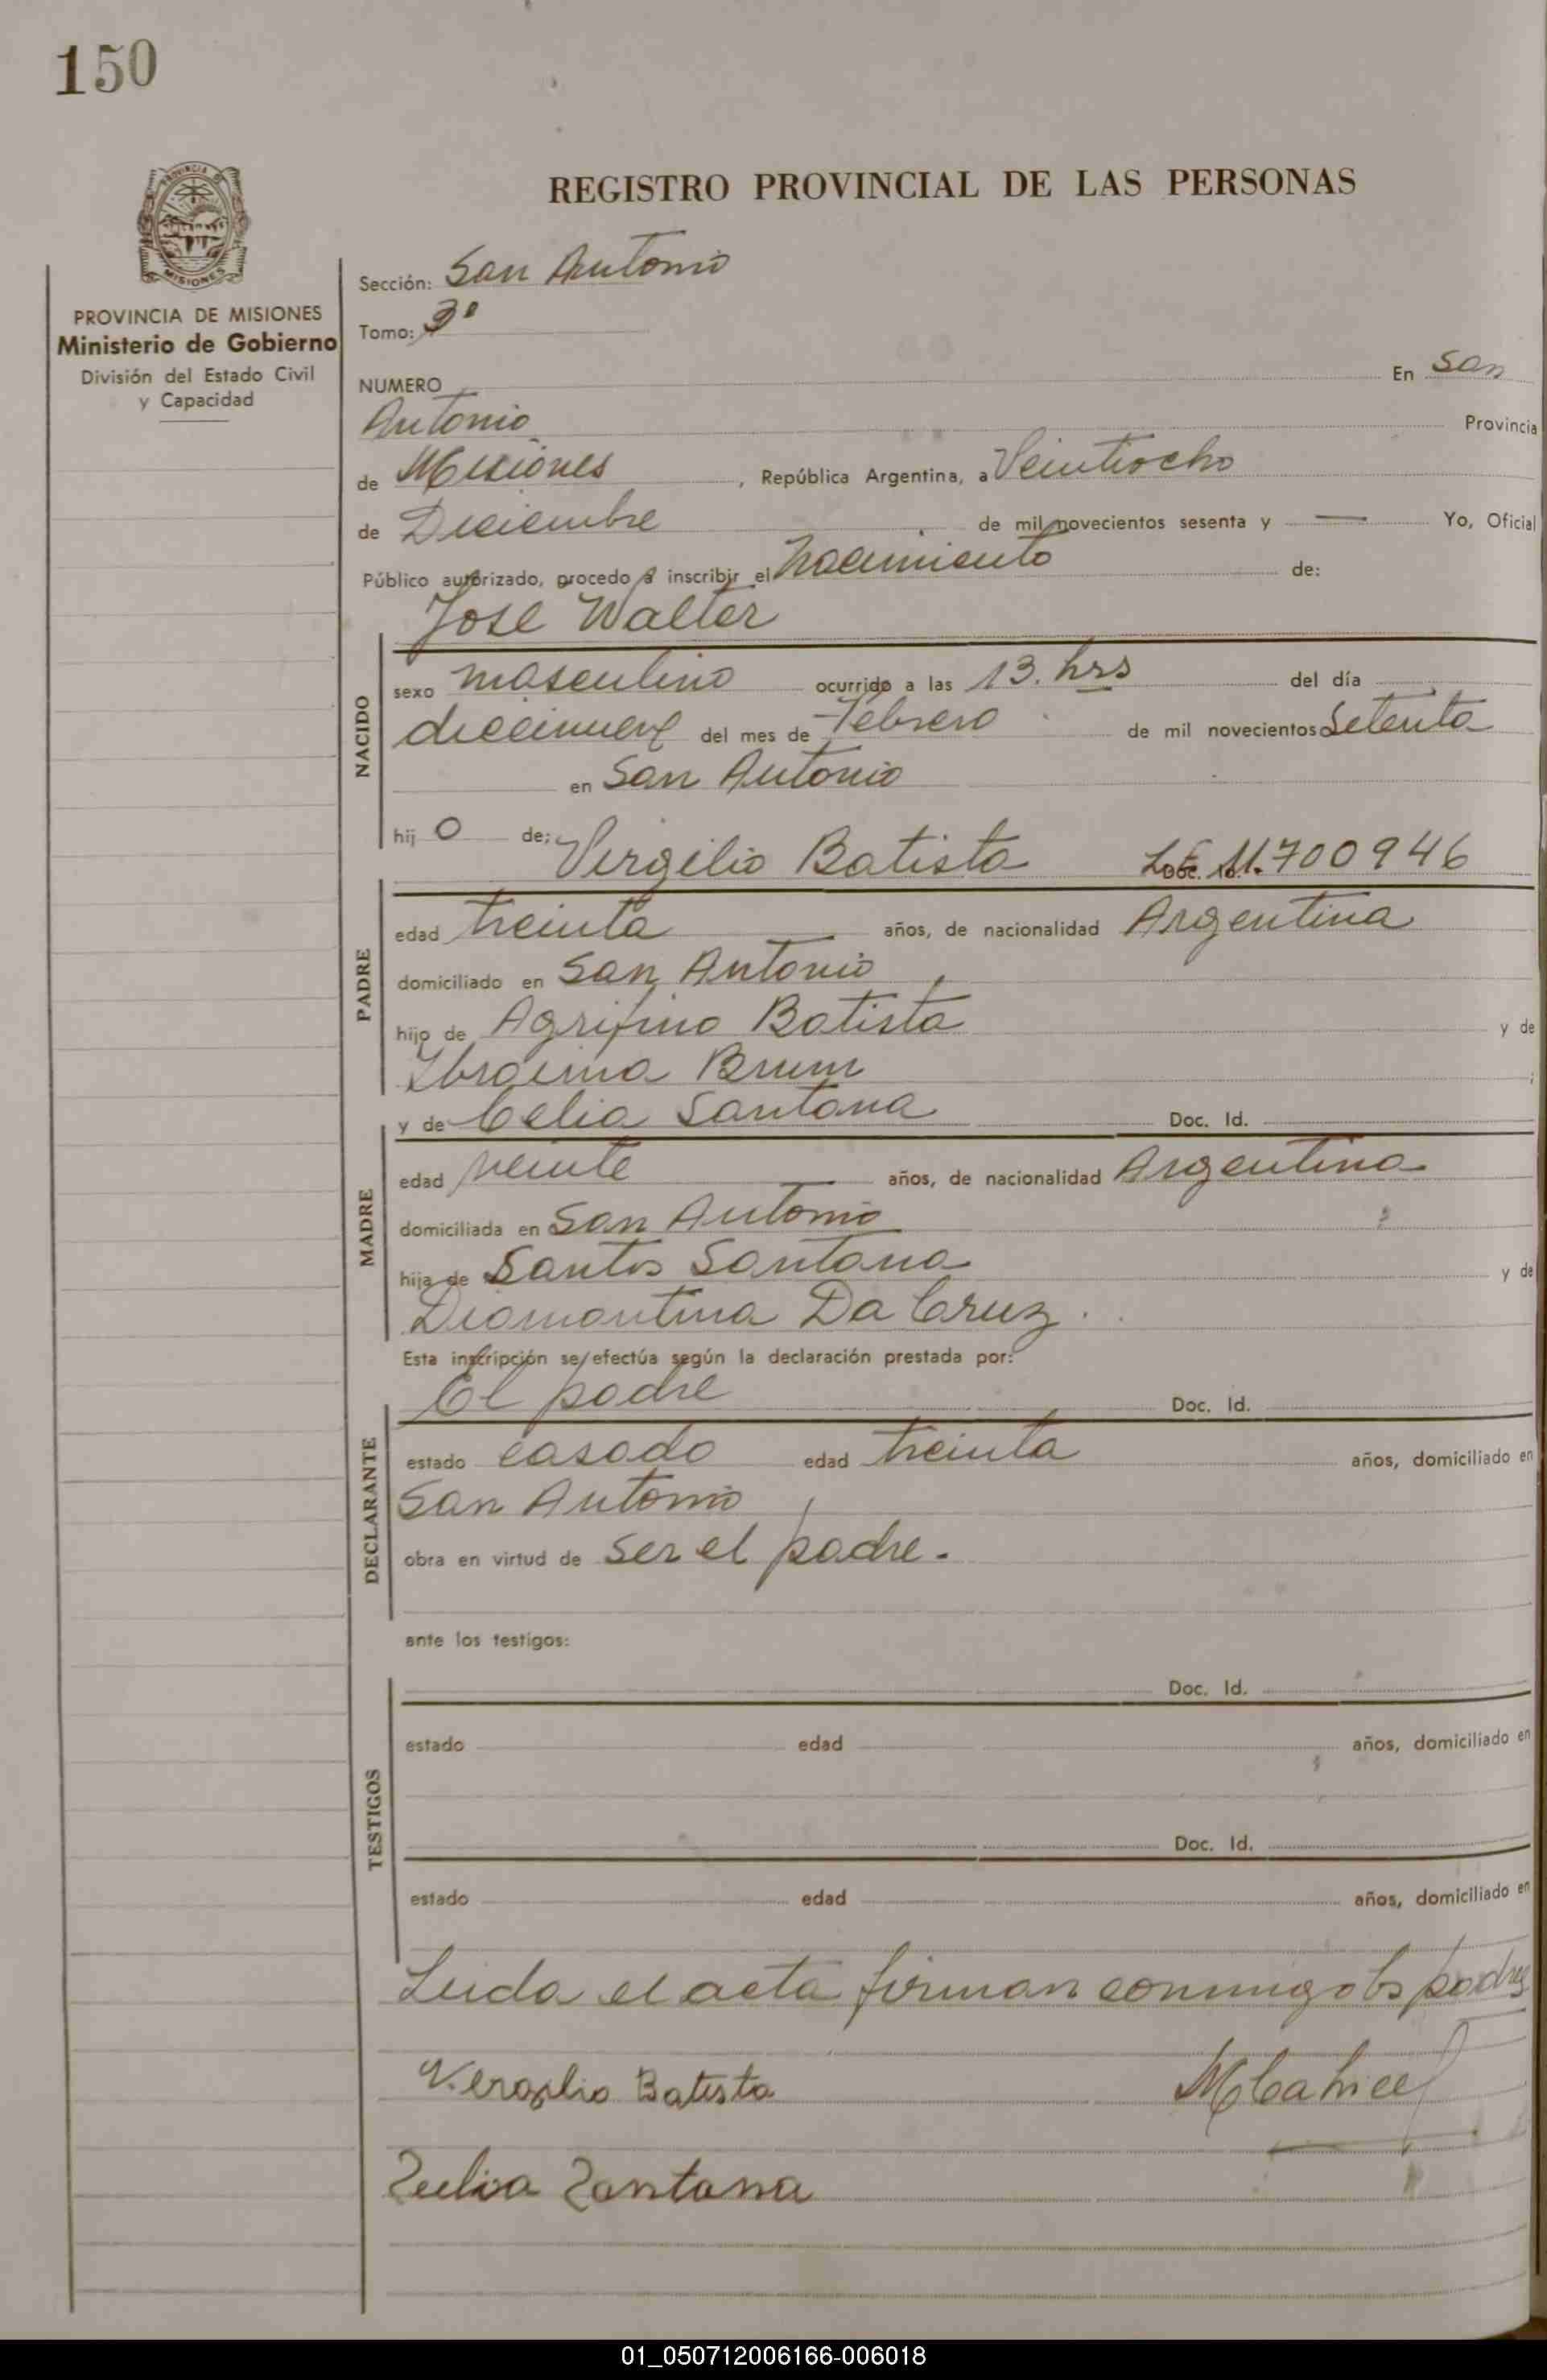 150
REGISTRO PROVINCIAL DE LAS PERSONAS
PROVINCIA
MISIONES
PROVINCIA DE MISIONES
Ministerio de Gobierno
División del Estado Civil
y Capacidad
Sección: San Antonio
Tomo: 3º
NUMERO En San
Antonio Provincia
de Misiones, República Argentina, a Veintiocho
de Diciembre de mil novecientos sesenta y — Yo, Oficial
Público autorizado, procedo a inscribir el Nacimiento de:
Jose Walter
NACIDO
sexo masculino ocurrido a las 13. hrs del día
diecinueve del mes de Febrero de mil novecientos Setenta
en San Antonio
hij o de: Virgilio Batista 11.700946
PADRE
edad treinta años, de nacionalidad Argentina
domiciliado en San Antonio
hijo de Agrifino Batista y de
Ibraeina Brum ;
y de Celia Santana Doc. Id.
MADRE
edad veinte años, de nacionalidad Argentina
domiciliada en San Antonio
hija de Santos Santana y de
Diamantina Da Cruz.
Esta inscripción se efectúa según la declaración prestada por:
El padre Doc. Id.
DECLARANTE
estado casado edad treinta años, domiciliado en
San Antonio
obra en virtud de ser el padre.
ante los testigos:
Doc. Id.
TESTIGOS
estado edad años, domiciliado en
Doc. Id.
estado edad años, domiciliado en
Leida el acta firman conmigo los padres
Vergilio Batista
Zulia Zantana
01_050712006166-006018